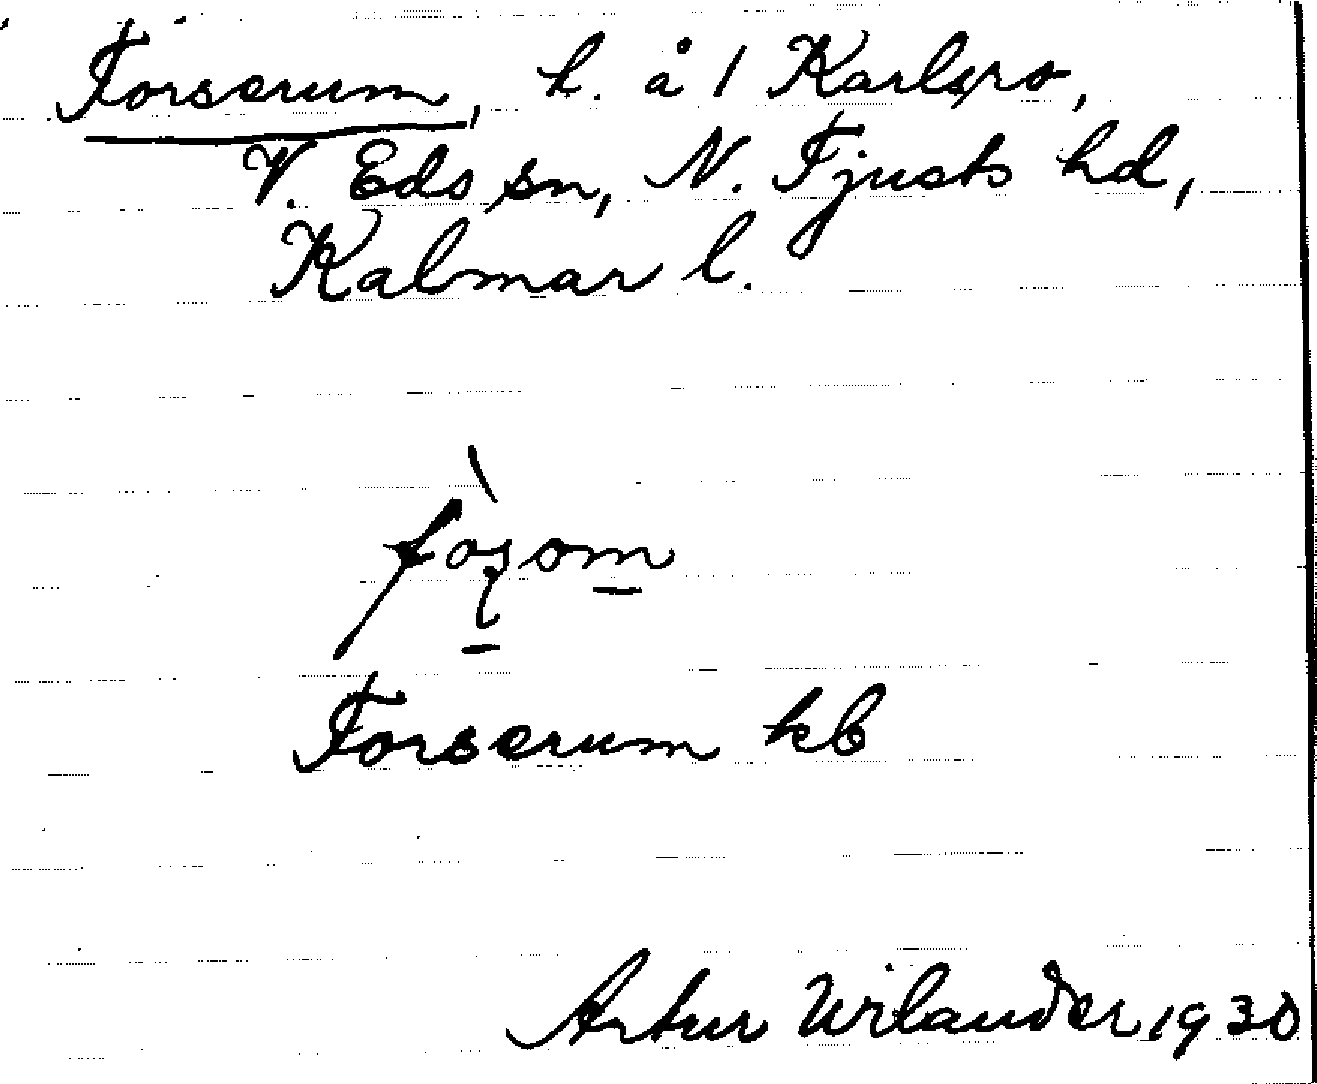 Forserum, h. å 1 Karlsro,
V. Eds sn, N. Tjusts hd,
Kalmar l.
Forserum kb
Artur Wilander 1930